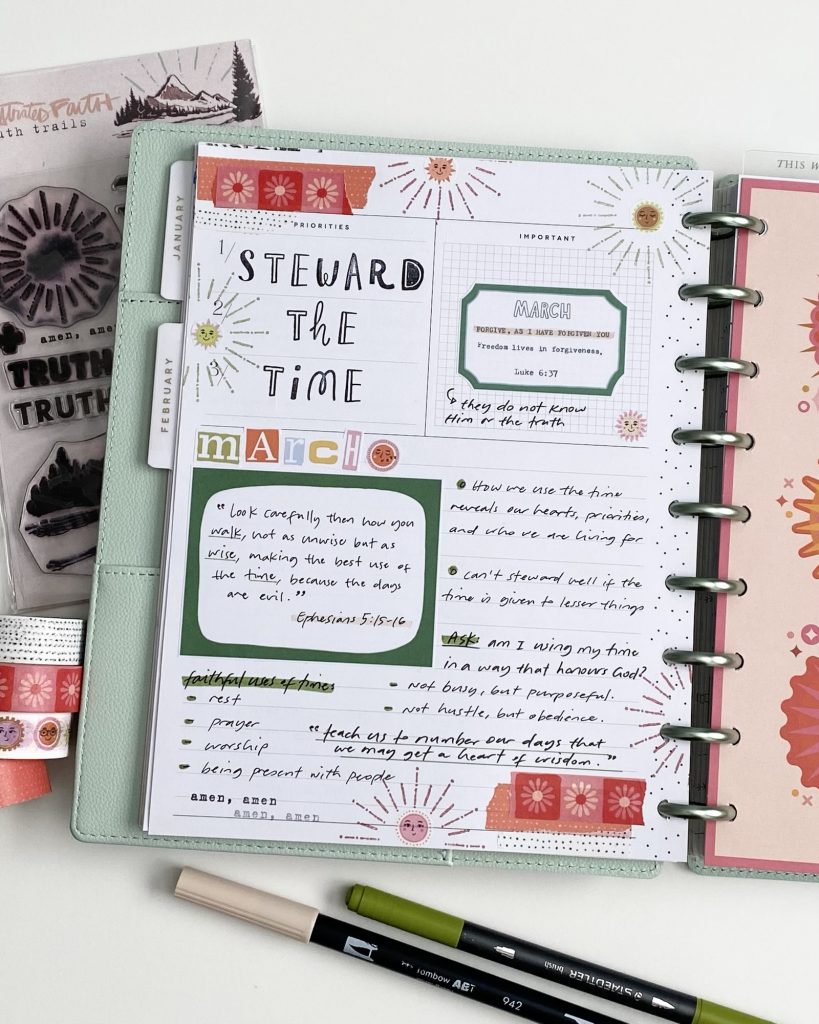 FAITH
truth trails
amen, amen
TRUTH
TRUTH
JANUARY
FEBRUARY
PRIORITIES
1/ STEWARD
2/ THE
3/ TIME
IMPORTANT
MARCH
FORGIVE, AS I HAVE FORGIVEN YOU
Freedom lives in forgiveness.
Luke 6:37
they do not know
Him or the truth
MArcH
"Look carefully then how you
walk, not as unwise but as
wise, making the best use of
the time, because the days
are evil."
Ephesians 5:15-16
How we use the time
reveals our hearts, priorities,
and who we are living for
Can't steward well if the
time is given to lesser things
Ask: am I using my time
in a way that honours God?
- Not busy, but purposeful.
- Not hustle, but obedience.
faithful uses of time:
- rest
- prayer
- worship
- being present with people
"teach us to number our days that
we may get a heart of wisdom."
amen, amen
amen, amen
THIS
Tombow ABT
942
STAEDTLER
brush